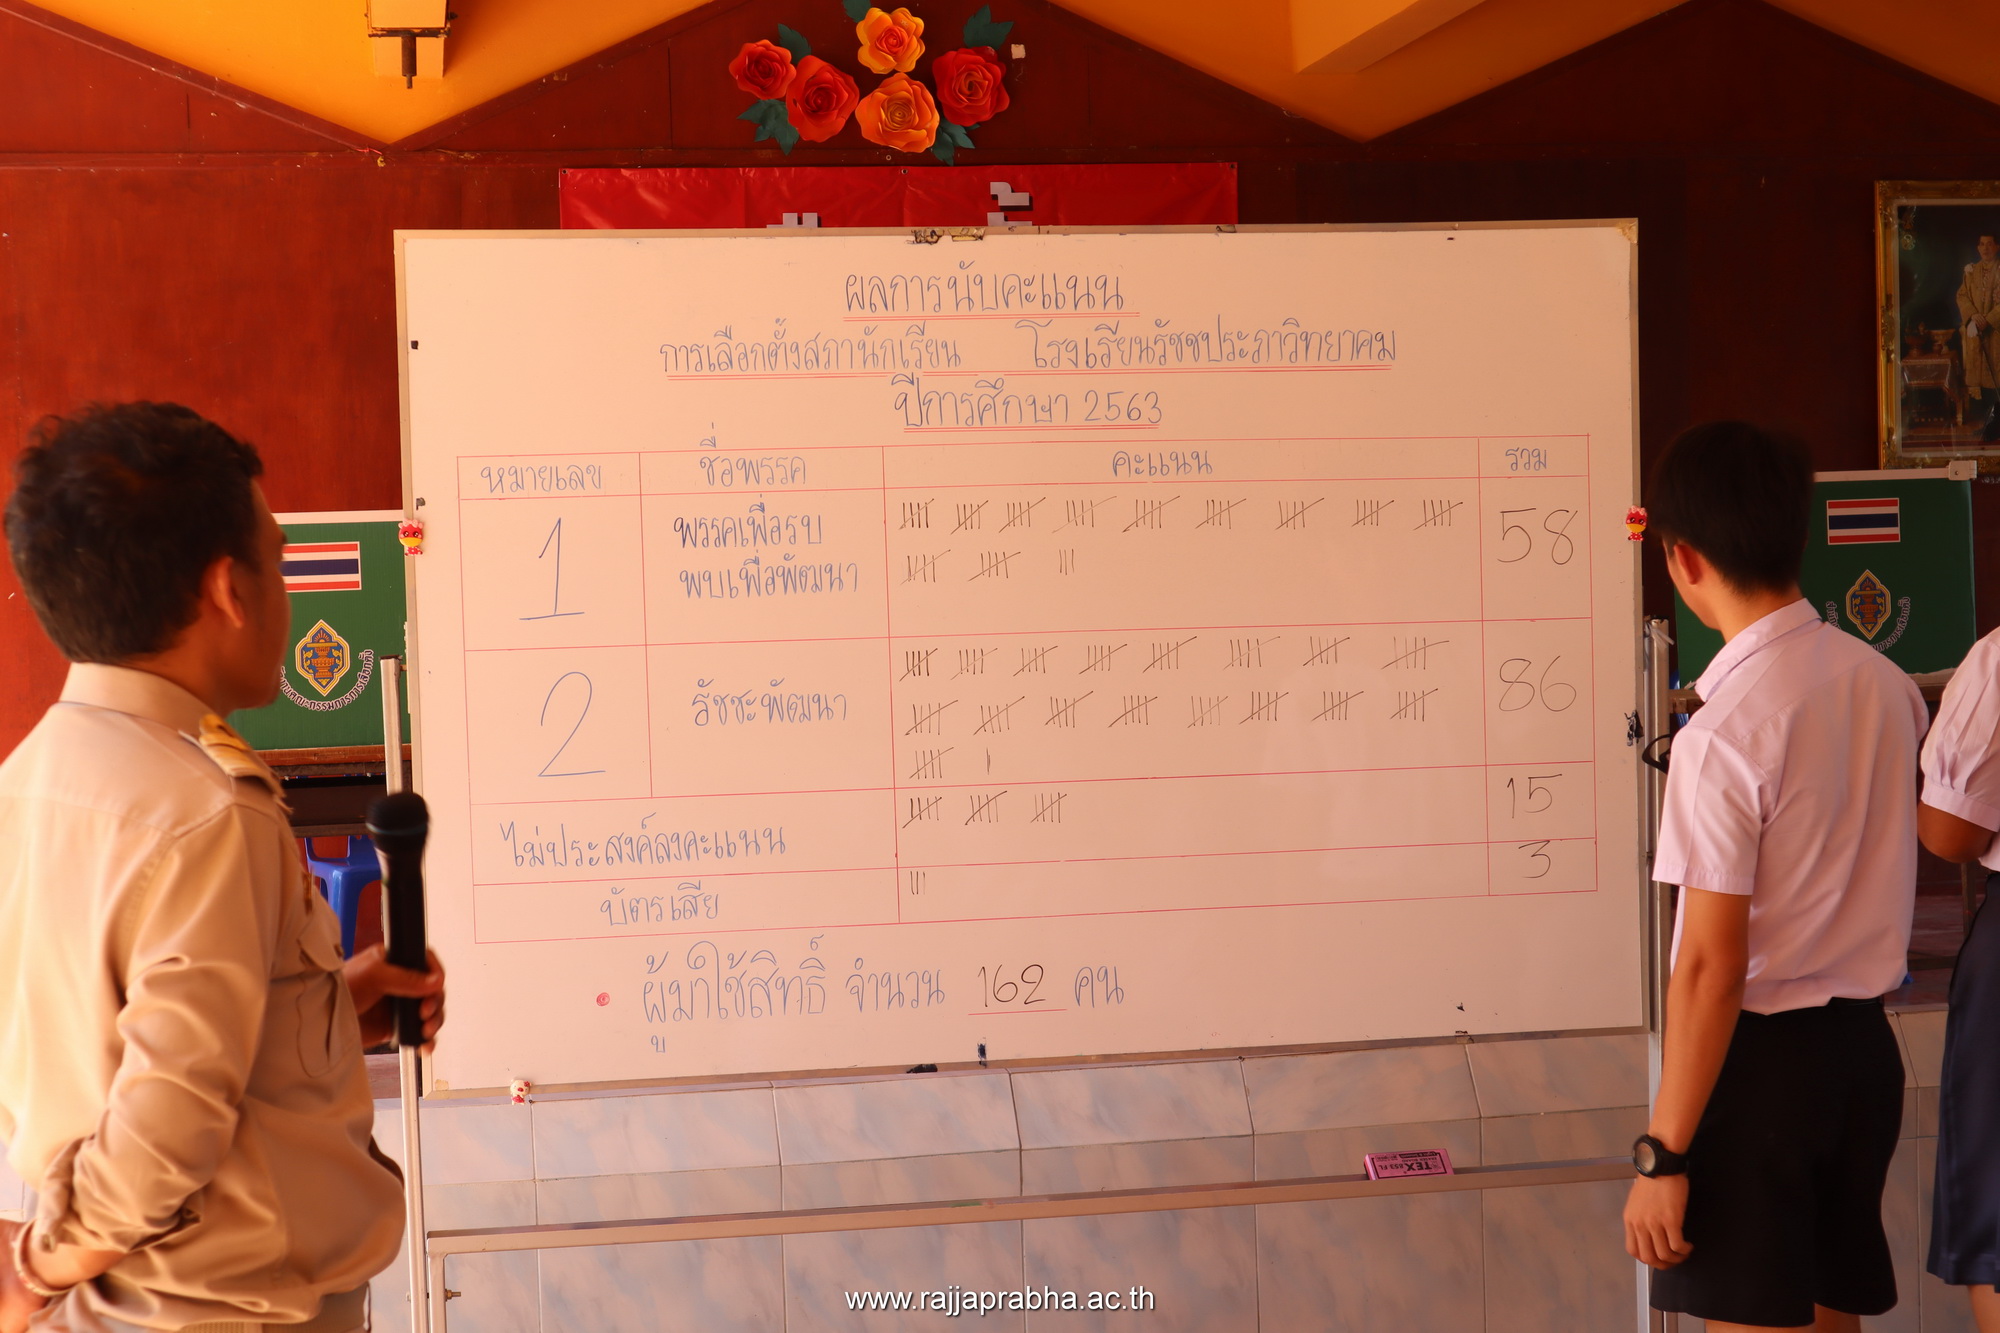 ผลการนับคะแนน
การเลือกตั้งสภานักเรียน โรงเรียนรัชชประภาวิทยาคม
ปีการศึกษา 2563
หมายเลข ชื่อพรรค คะแนน รวม
1 พรรคเพื่อรบ 58
พบเพื่อพัฒนา
2 รัชชะพัฒนา 86
ไม่ประสงค์ลงคะแนน 15
บัตรเสีย 3
ผู้มาใช้สิทธิ์ จำนวน 162 คน
TEX 853 FL
www.rajjaprabha.ac.th